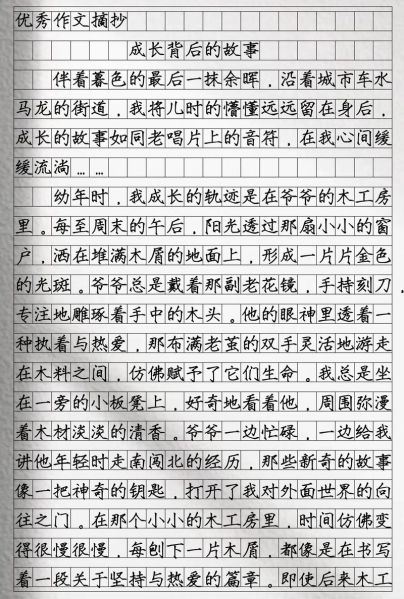 优秀作文摘抄
成长背后的故事
伴着暮色的最后一抹余晖，沿着城市车水
马龙的街道，我将儿时的懵懂远远留在身后，
成长的故事如同老唱片上的音符，在我心间缓
缓流淌……
幼年时，我成长的轨迹是在爷爷的木工房
里。每至周末的午后，阳光透过那扇小小的窗
户，洒在堆满木屑的地面上，形成一片片金色
的光斑。爷爷总是戴着那副老花镜，手持刻刀，
专注地雕琢着手中的木头。他的眼神里透着一
种执着与热爱，那布满老茧的双手灵活地游走
在木料之间，仿佛赋予了它们生命。我总是坐
在一旁的小板凳上，好奇地看着他，周围弥漫
着木材淡淡的清香。爷爷一边忙碌，一边给我
讲他年轻时走南闯北的经历，那些新奇的故事
像一把神奇的钥匙，打开了我对外面世界的向
往之门。在那个小小的木工房里，时间仿佛变
得很慢很慢，每刨下一片木屑，都像是在书写
着一段关于坚持与热爱的篇章。即使后来木工